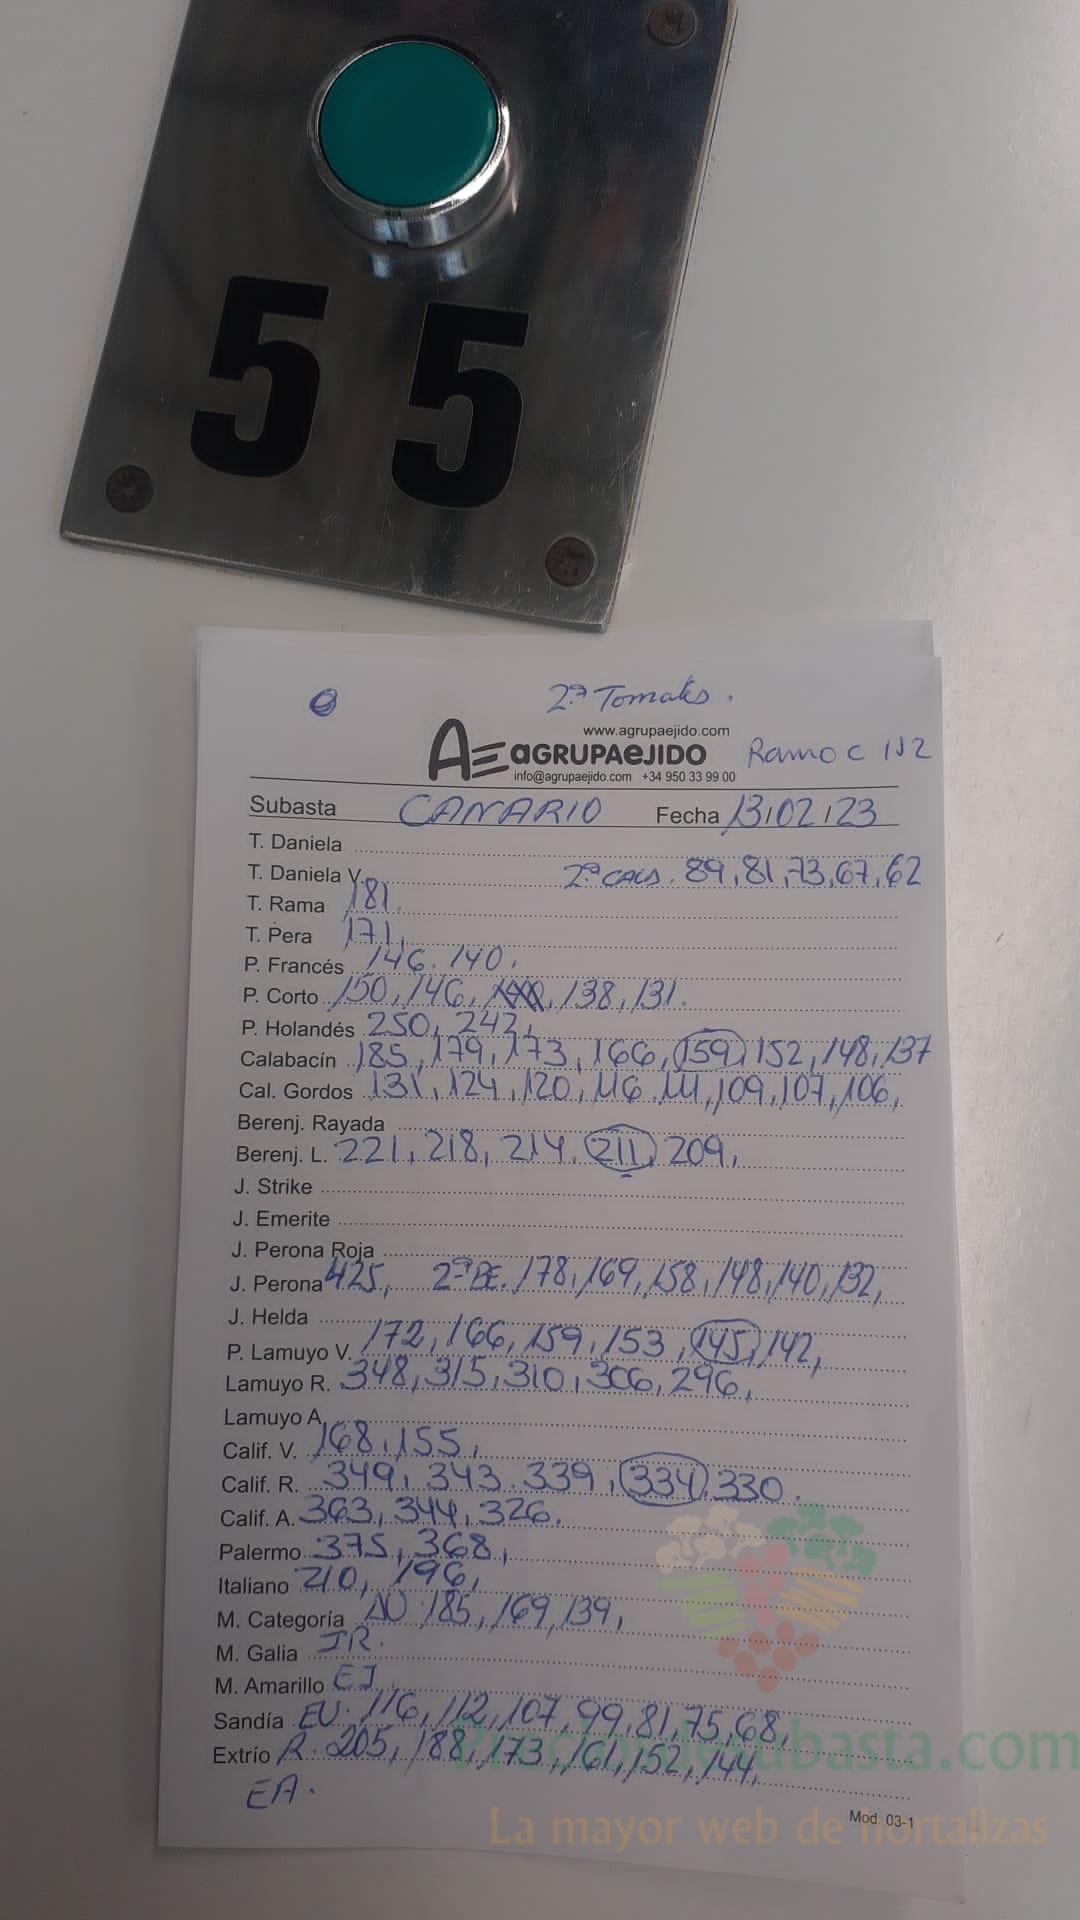 55
2ª Tomates.
www.agrupaejido.com
AE aGRUPAeJIDO Ramo C 112
info@agrupaejido.com +34 950 33 99 00
Subasta CANARIO Fecha 13/02/23
T. Daniela
T. Daniela V. 2ª CALS. 89, 81, 73, 67, 62
T. Rama 181.
T. Pera 171,
P. Francés 146. 140.
P. Corto 150, 146, 138, 131.
P. Holandés 250, 242,
Calabacín 185, 179, 173, 166, 159, 152, 148, 137
Cal. Gordos 131, 124, 120, 116, 111, 109, 107, 106,
Berenj. Rayada
Berenj. L. 221, 218, 214, 211, 209,
J. Strike
J. Emerite
J. Perona Roja
J. Perona 425, 2ª BE. 178, 169, 158, 148, 140, 132,
J. Helda
P. Lamuyo V. 172, 166, 159, 153, 145, 142,
Lamuyo R. 348, 315, 310, 306, 296,
Lamuyo A.
Calif. V. 168, 155,
Calif. R. 349, 343. 339, 334, 330.
Calif. A. 363, 344, 326.
Palermo 375, 368,
Italiano 210, 196,
M. Categoría AU 185, 169, 139,
M. Galia JR.
M. Amarillo EJ
Sandía EU. 116, 112, 107, 99, 81, 75, 68,
Extrío R. 205, 188, 173, 161, 152, 144,
EA.
Preciosdesubasta.com
Mod. 03-1
La mayor web de hortalizas